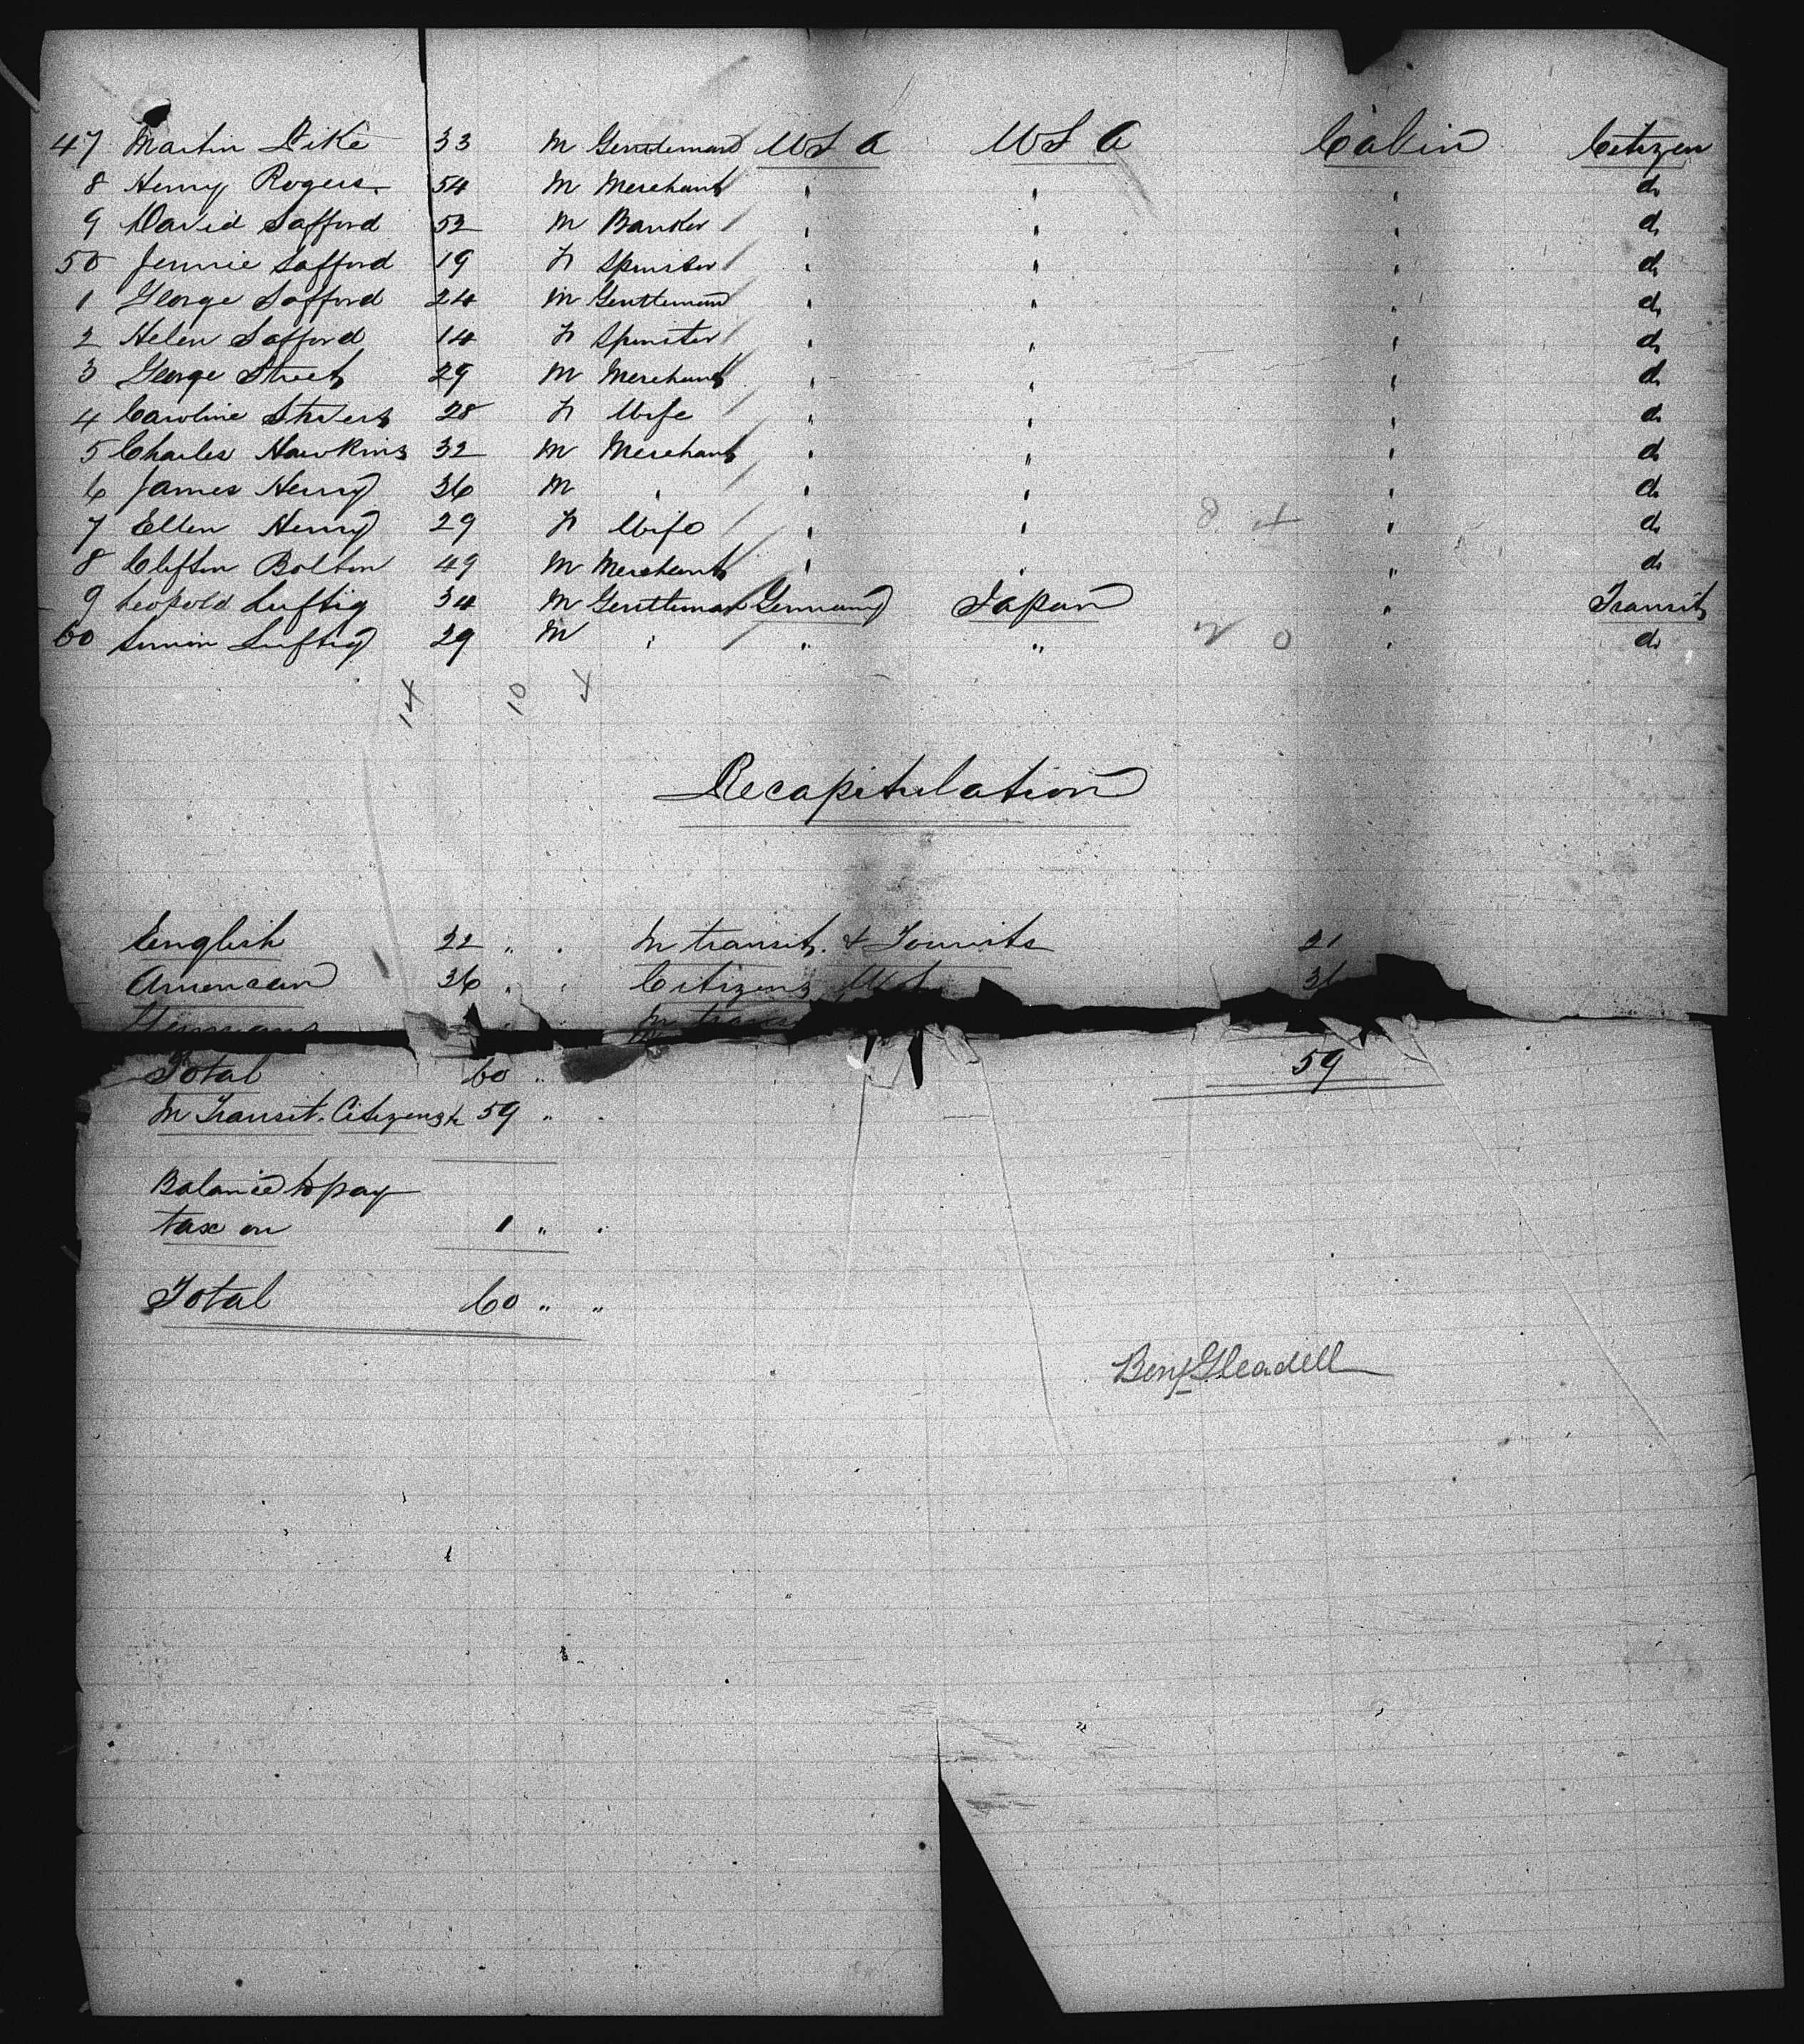 47 Martin Dike 33 M Gentleman USA USA Cabin Citizen
8 Henry Rogers 54 M Merchant " " " do
9 David Safford 52 M Banker " " " do
50 Jennie Safford 19 F Spinster " " " do
1 George Safford 24 M Gentleman " " " do
2 Helen Safford 14 F Spinster " " " do
3 George Street 29 M Merchant " " " do
4 Caroline Street 28 F Wife " " " do
5 Charles Hawkins 32 M Merchant " " " do
6 James Henry 36 M " " " " do
7 Ellen Henry 29 F Wife " " 8 4 " do
8 Clifton Bolton 49 M Merchant " " " do
9 Leopold Luftig 34 M Gentleman Germany Japan " Transit
60 Simon Luftig 29 M " " " 2 0 " do
14 10 4
Recapitulation
English 22 " " In transit & Tourists 21
American 36 " " Citizens 36
Germans In
Total 60 " 59
In Transit. Citizens &c 59 " "
Balance to pay
tax on 1 " "
Total 60 " "
Benj Gleadell